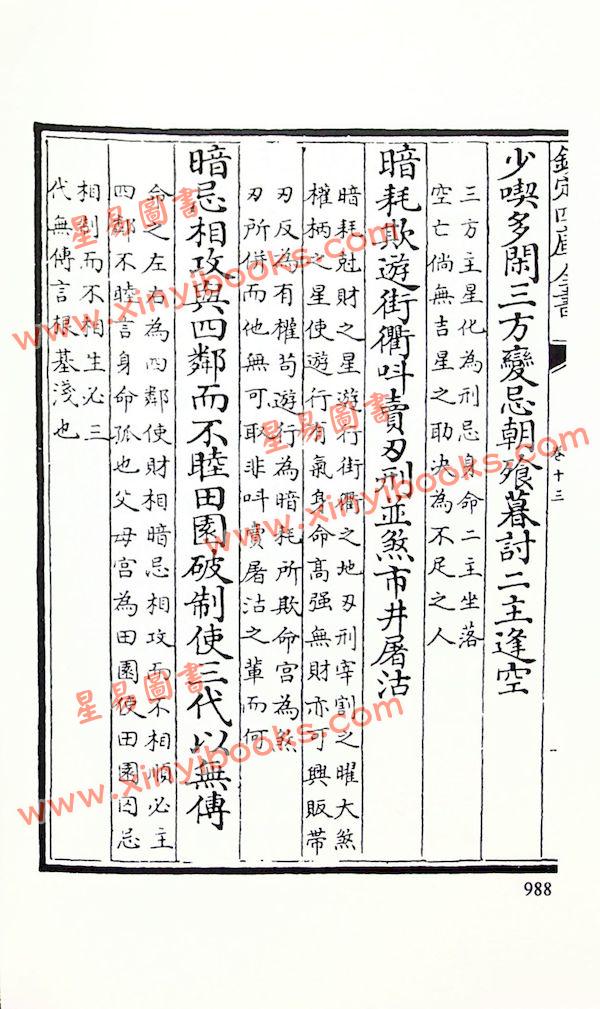 欽定四庫全書
卷十三
少喫多閑三方變忌朝飱暮討二主逢空
三方主星化為刑忌身命二主坐落
空亡倘無吉星之助决為不足之人
暗耗欺遊街衢呌賣刃刑並煞市井屠沽
暗耗尅財之星遊行街衢之地刃刑宰割之曜大煞
權柄之星使遊行有氣身命髙强無財亦可興販帶
刃反為有權茍遊行為暗耗所欺命宫為煞
刃所併而他無可取非呌賣屠沽之輩而何
暗忌相攻與四鄰而不睦田園破制使三代以無傳
命之左右為四鄰使財相暗忌相攻而不相順必主
四鄰不睦言身命孤也父母宫為田園使田園囚忌
相剋而不相生必三
代無傳言根基淺也
988
星易圖書
www.xinyibooks.com
星易圖書
www.xinyibooks.com
星易圖書
www.xinyibooks.com